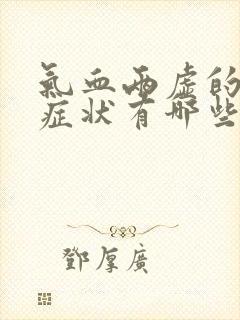 氣血兩虛的
症狀有哪些
鄧厚廣